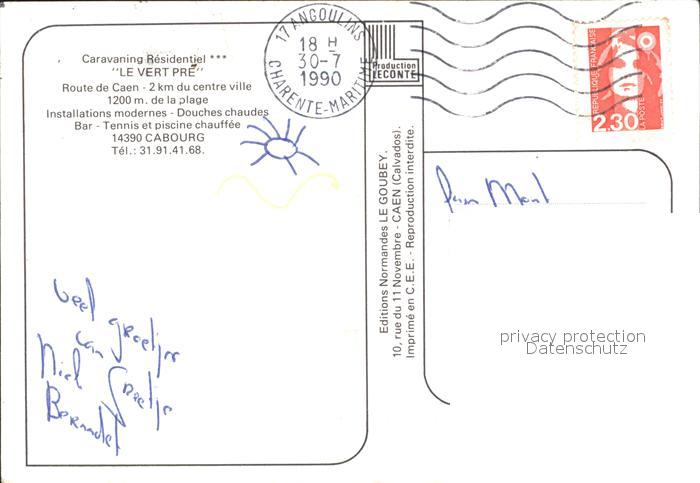 Caravaning Résidentiel ***
"LE VERT PRÉ"
Route de Caen - 2 km du centre ville
1200 m. de la plage
Installations modernes - Douches chaudes
Bar - Tennis et piscine chauffée
14390 CABOURG
Tél.: 31.91.41.68.
17 ANGOULINS
18 H
30-7
1990
CHARENTE-MARITIME
Production
LECONTE
RÉPUBLIQUE FRANÇAISE
2,30
LA POSTE
Editions Normandes LE GOUBEY.
10, rue du 11 Novembre - CAEN (Calvados).
Imprimé en C.E.E. - Reproduction interdite.
veel
groetjes
van
Niel
Greetje
Bernadet
privacy protection
Datenschutz